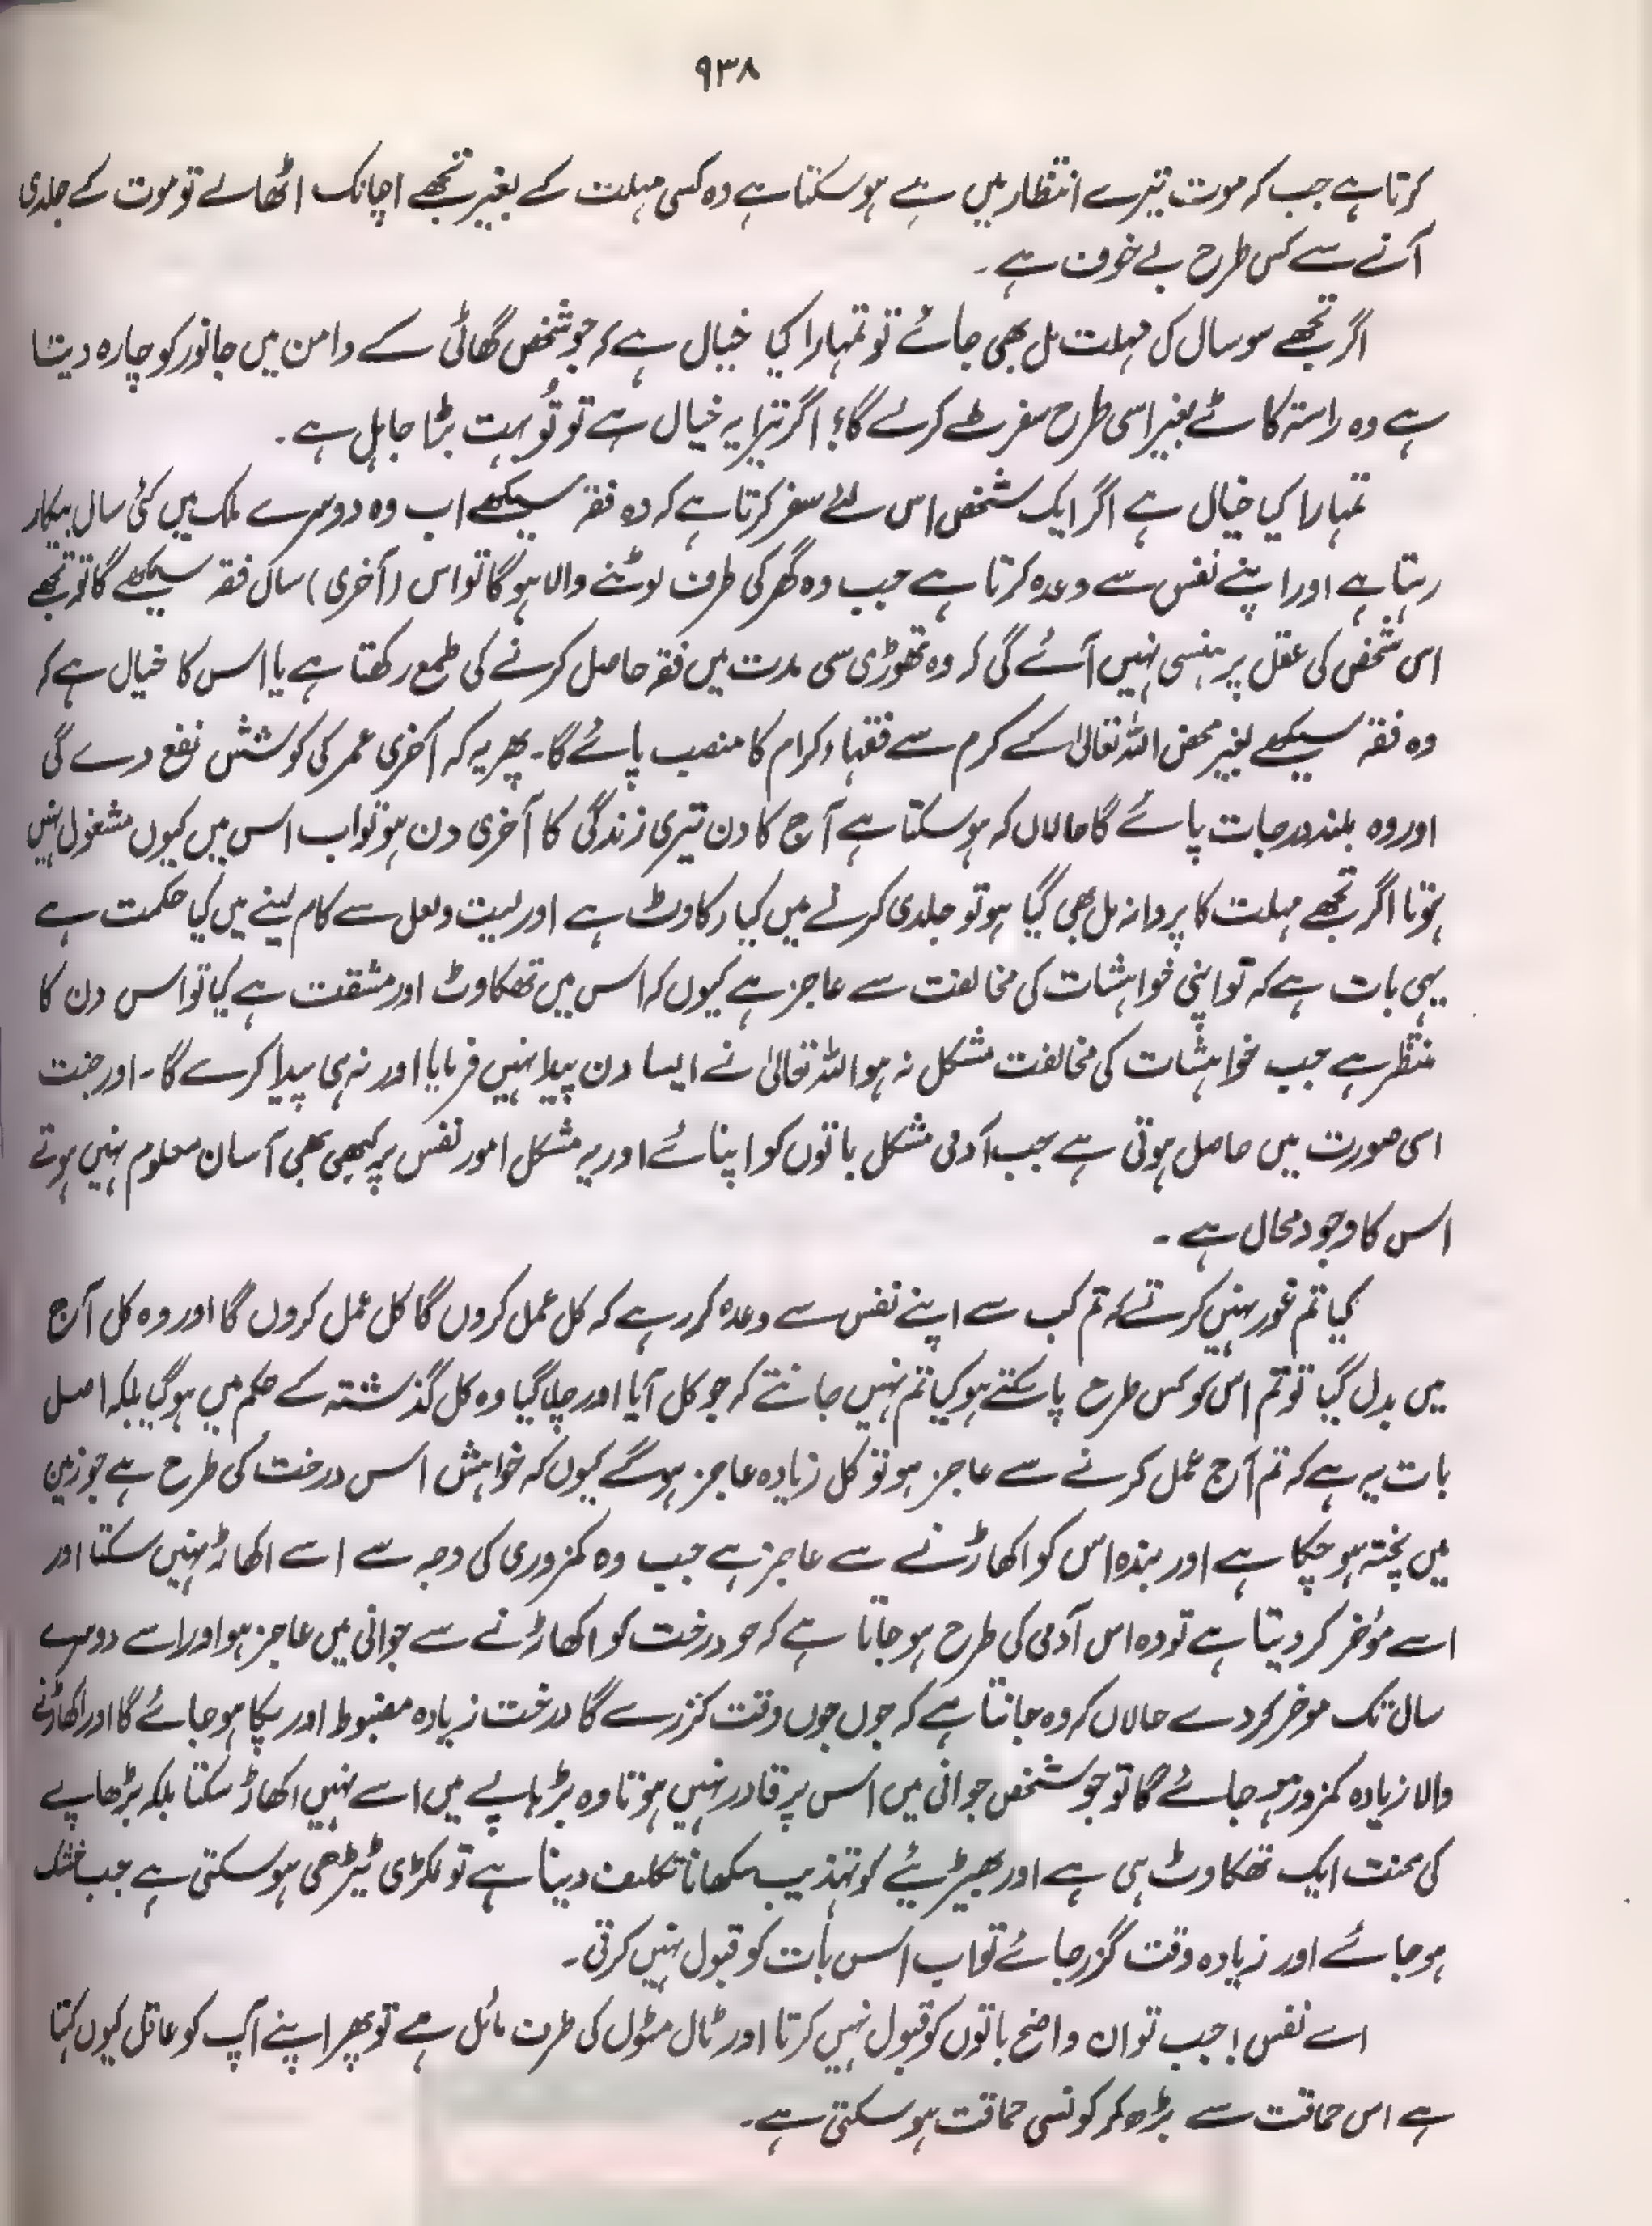 ۹۳۸
کرتا ہے جب کہ موت تیرے انتظار میں ہے ہو سکتا ہے وہ کسی مہلت کے بغیر تجھے اچانک اٹھا لے تو موت کے جلدی
آنے سے کس طرح بے خوف ہے۔
اگر تجھے سو سال کی مہلت مل بھی جائے تو تمہارا کیا خیال ہے کہ جو شخص گھاٹی کے دامن میں جانور کو چارہ دیتا
ہے وہ راستہ کاٹے بغیر اسی طرح سفر طے کرلے گا؟ اگر تیرا یہ خیال ہے تو تُو بہت بڑا جاہل ہے۔
تمہارا کیا خیال ہے اگر ایک شخص اس لئے سفر کرتا ہے کہ وہ فقہ سیکھے اب وہ دوسرے ملک میں کئی سال بیکار
رہتا ہے اور اپنے نفس سے وعدہ کرتا ہے جب وہ گھر کی طرف لوٹنے والا ہو گا تو اس (آخری) سال فقہ سیکھے گا تو تجھے
اس شخص کی عقل پر ہنسی نہیں آئے گی کہ وہ تھوڑی سی مدت میں فقہ حاصل کرنے کی طمع رکھتا ہے یا اس کا خیال ہے کہ
وہ فقہ سیکھے بغیر محض اللہ تعالیٰ کے کرم سے فقہاء کرام کا منصب پائے گا۔ پھر یہ کہ آخری عمر کی کوشش نفع دے گی
اور وہ بلند درجات پائے گا حالاں کہ ہو سکتا ہے آج کا دن تیری زندگی کا آخری دن ہو تو اب اس میں کیوں مشغول نہیں
ہوتا اگر تجھے مہلت کا پروانہ مل بھی گیا ہو تو جلدی کرنے میں کیا رکاوٹ ہے اور لیت و لعل سے کام لینے میں کیا حکمت ہے
یہی بات ہے کہ تو اپنی خواہشات کی مخالفت سے عاجز ہے کیوں کہ اس میں تھکاوٹ اور مشقت ہے کیا تو اس دن کا
منتظر ہے جب خواہشات کی مخالفت مشکل نہ ہو اللہ تعالیٰ نے ایسا دن پیدا نہیں فرمایا اور نہ ہی پیدا کرے گا۔ اور جنت
اسی صورت میں حاصل ہوتی ہے جب آدمی مشکل باتوں کو اپنائے اور یہ مشکل امور نفس پر کبھی بھی آسان معلوم نہیں ہوتے
اس کا وجود محال ہے۔
کیا تم غور نہیں کرتے کہ تم کب سے اپنے نفس سے وعدہ کر رہے کہ کل عمل کروں گا کل عمل کروں گا اور وہ کل آج
میں بدل گیا تو تم اس کو کس طرح پا سکتے ہو کیا تم نہیں جانتے کہ جو کل آیا اور چلا گیا وہ کل گذشتہ کے حکم میں ہو گیا بلکہ اصل
بات یہ ہے کہ تم آج عمل کرنے سے عاجز ہو تو کل زیادہ عاجز ہو گے کیوں کہ خواہش اس درخت کی طرح ہے جو زمین
میں پختہ ہو چکا ہے اور بندہ اس کو اکھاڑنے سے عاجز ہے جب وہ کمزوری کی وجہ سے اسے اکھاڑ نہیں سکتا اور
اسے مؤخر کر دیتا ہے تو وہ اس آدمی کی طرح ہو جاتا ہے کہ جو درخت کو اکھاڑنے سے جوانی میں عاجز ہو اور اسے دوسرے
سال تک موخر کردے حالاں کہ وہ جانتا ہے کہ جوں جوں وقت گزرے گا درخت زیادہ مضبوط اور پکا ہو جائے گا اور اکھاڑنے
والا زیادہ کمزور ہو جائے گا تو جو شخص جوانی میں اس پر قادر نہیں ہوتا وہ بڑہاپے میں اسے نہیں اکھاڑ سکتا بلکہ بڑھاپے
کی محنت ایک تھکاوٹ ہی ہے اور بھیڑیئے کو تہذیب سکھانا تکلیف دینا ہے تو لکڑی ٹیڑھی ہو سکتی ہے جب خشک
ہو جائے اور زیادہ وقت گزر جائے تو اب اس بات کو قبول نہیں کرتی۔
اے نفس! جب تو ان واضح باتوں کو قبول نہیں کرتا اور ٹال مٹول کی طرف مائل ہے تو پھر اپنے آپ کو عاقل کیوں کہتا
ہے اس حماقت سے بڑھ کر کونسی حماقت ہو سکتی ہے۔